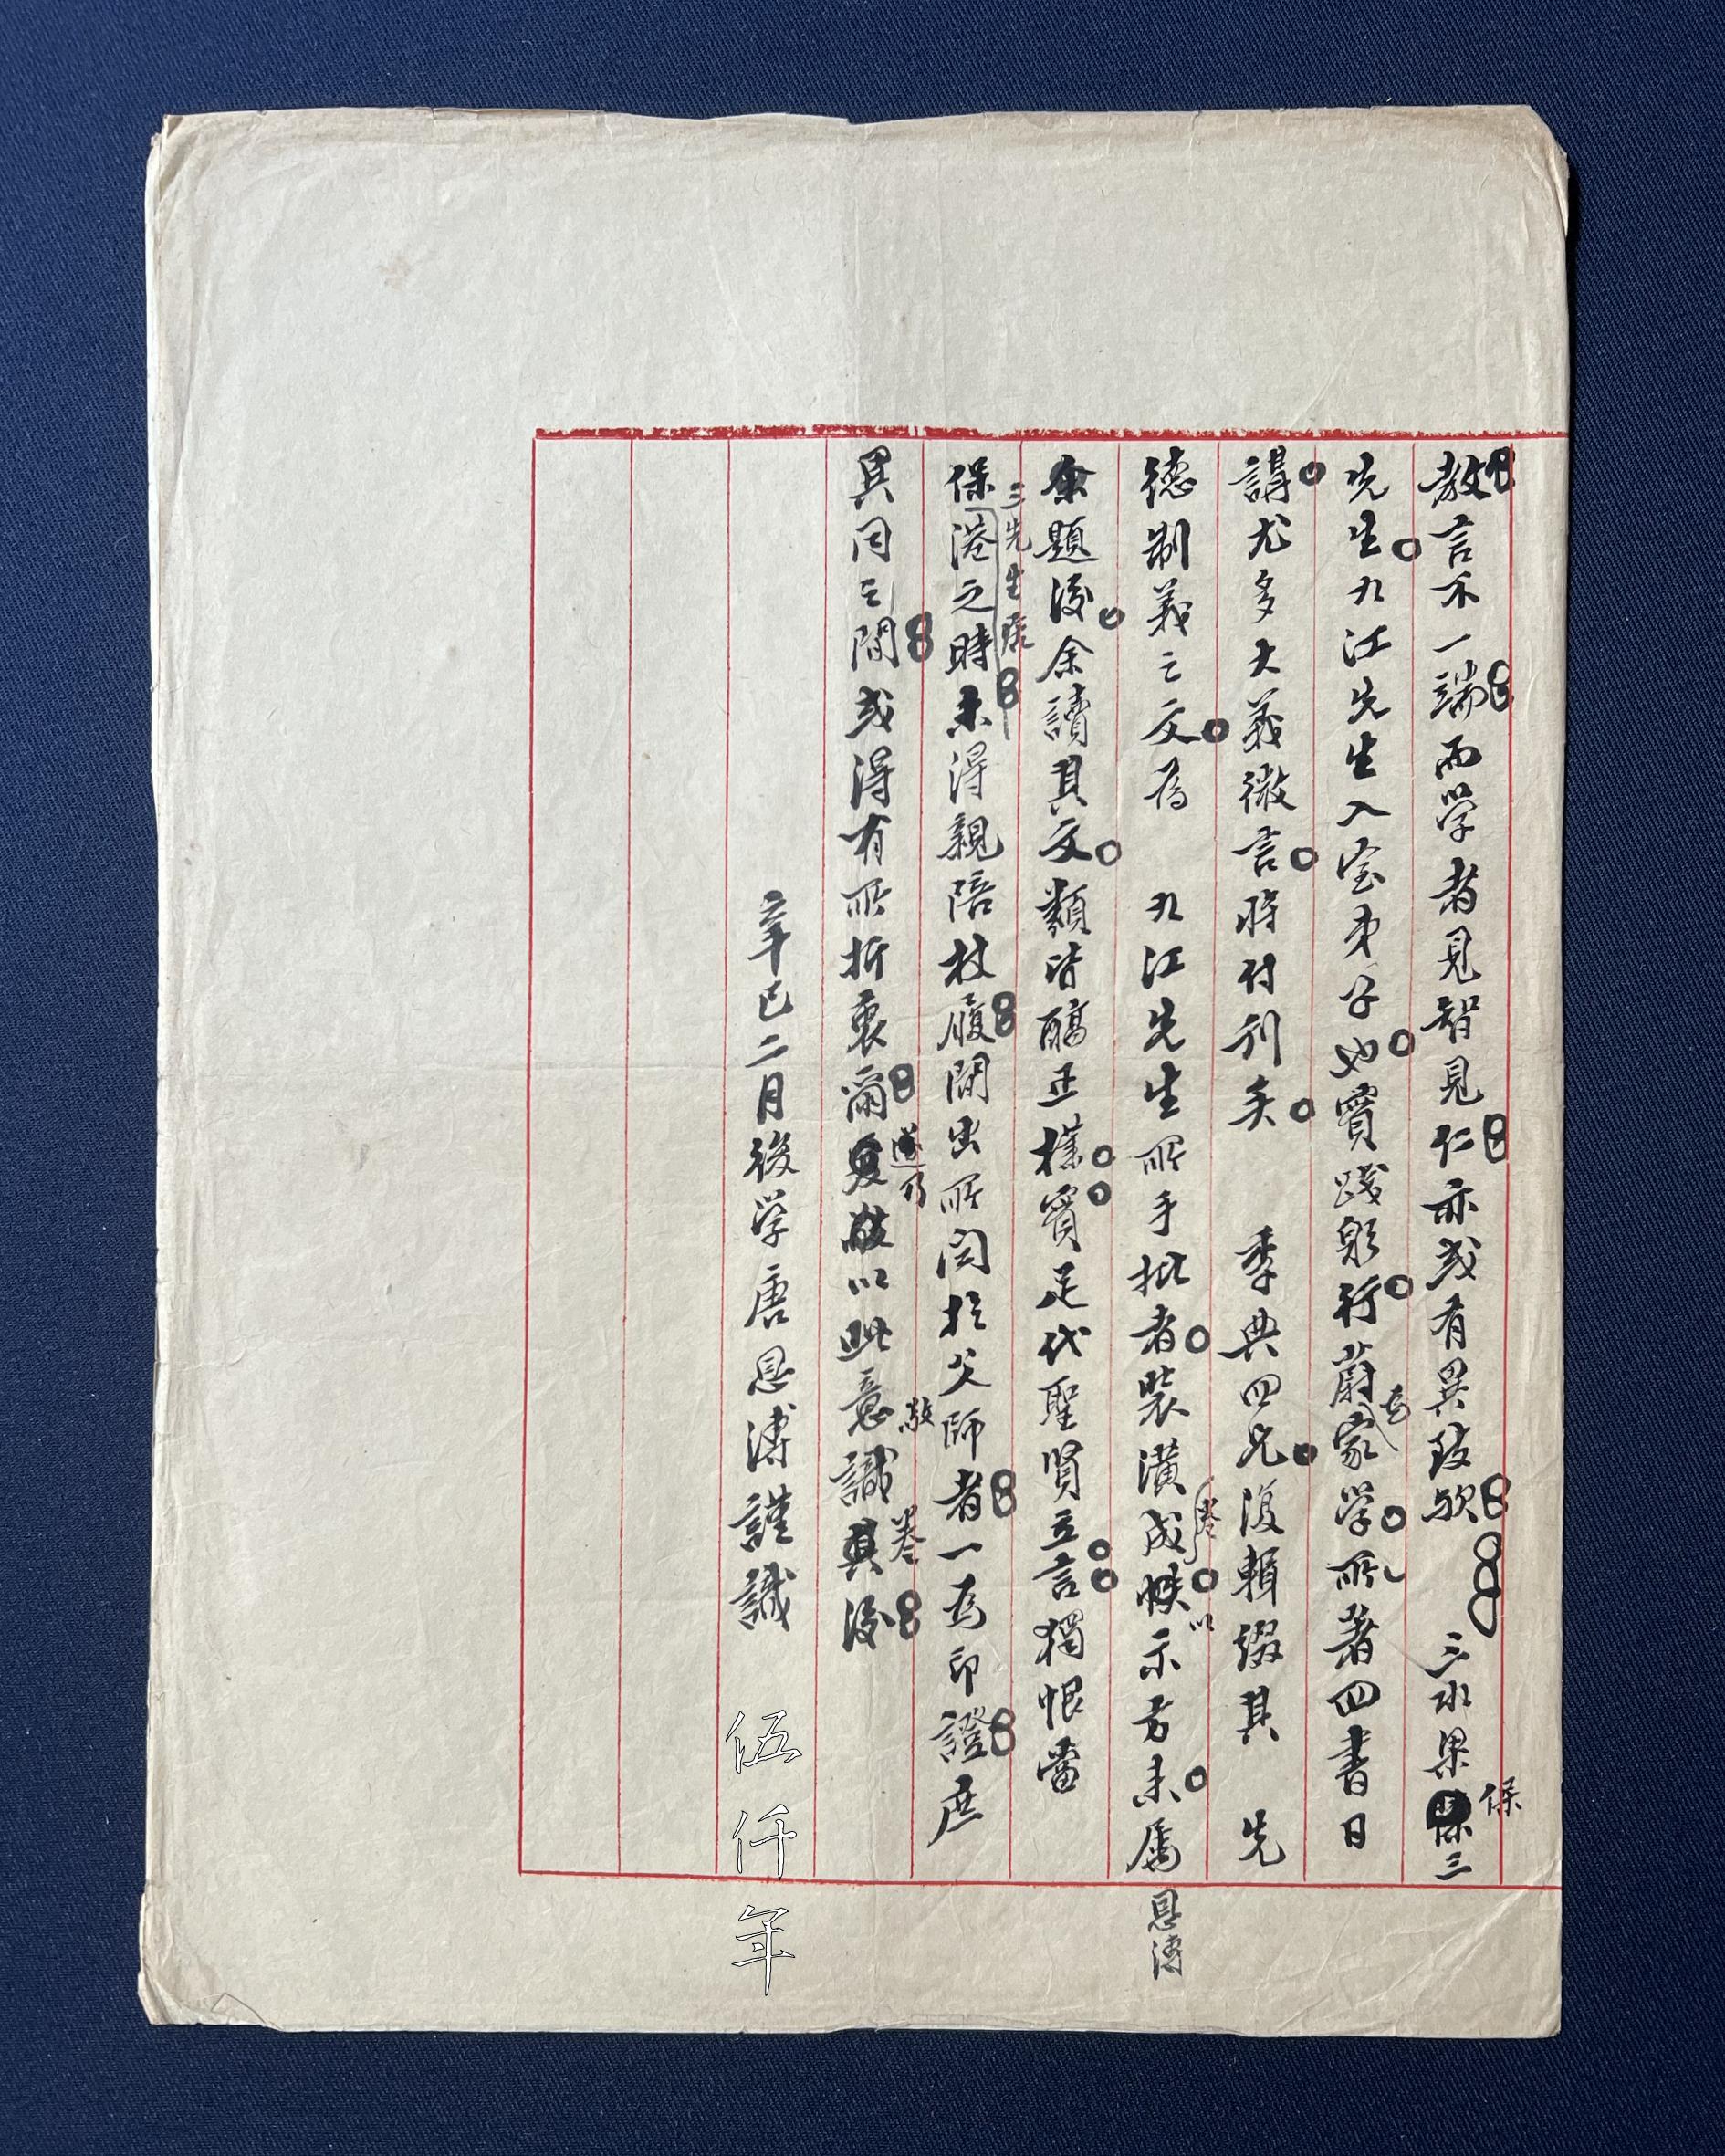 教言不一端而学者見智見仁亦或有異致欤 三水梁保三
先生九江先生入室弟子也實踐躬行蔚為家学所著四書日
講尤多大義微言時付刊矣 季典四兄復輯綴其 先
德制義之文為 九江先生所手批者裝潢成卷帙以示方未属恩溥
余題後余讀其文類皆醇正樸實足代聖賢立言獨恨當
保三先生居港之時未得親陪杖履間出所聞於父師者一為印證庶
異同之間或得有所折衷爾遂乃敬以此意敬識其卷後
辛巳二月後学唐恩溥謹識
伍仟年